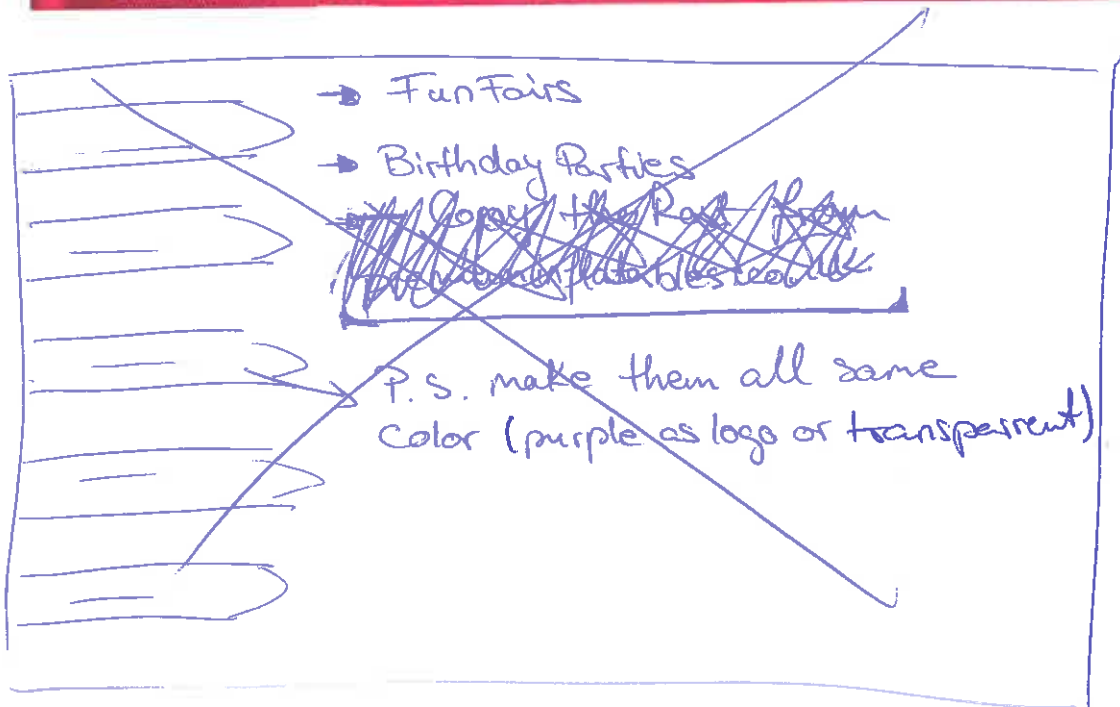 → Fun Fairs
→ Birthday Parties
→ Copy the Rest from
inflatables.co.uk
P.S. make them all same
color (purple as logo or transperrent)